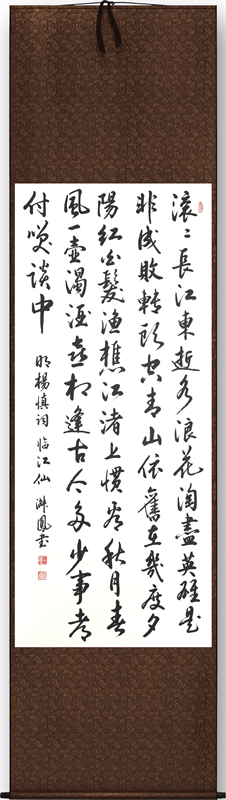 滚〻長江東逝水浪花淘盡英雄是
非成敗轉頭空青山依舊在幾度夕
陽紅白髮漁樵江渚上慣看秋月春
風一壺濁酒喜相逢古今多少事都
付笑談中
明楊慎詞臨江仙 鳳書